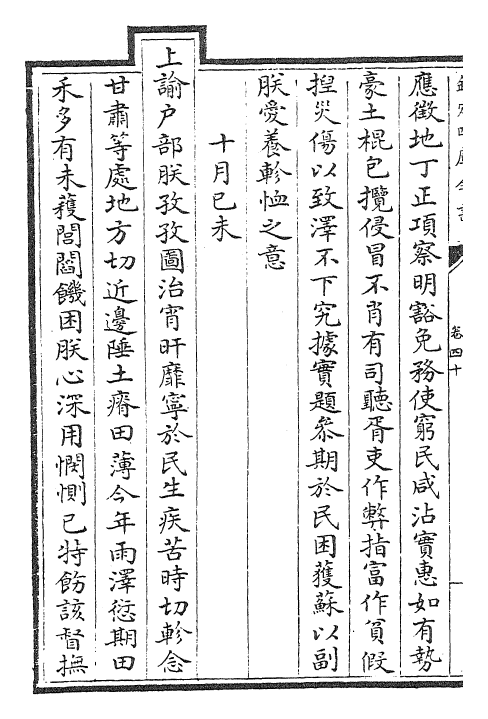 欽定四庫全書
卷四十
應徵地丁正項察明豁免務使窮民咸沾實惠如有勢
豪土棍包攬侵冒不肖有司聽胥吏作弊指富作貧假
捏災傷以致澤不下究據實題叅期於民困獲蘇以副
朕愛養軫恤之意
十月己未
上諭户部朕孜孜圖治宵旰靡寧於民生疾苦時切軫念
甘肅等處地方切近邊陲土瘠田薄今年雨澤愆期田
禾多有未穫閭閻饑困朕心深用憫惻已特飭該督撫